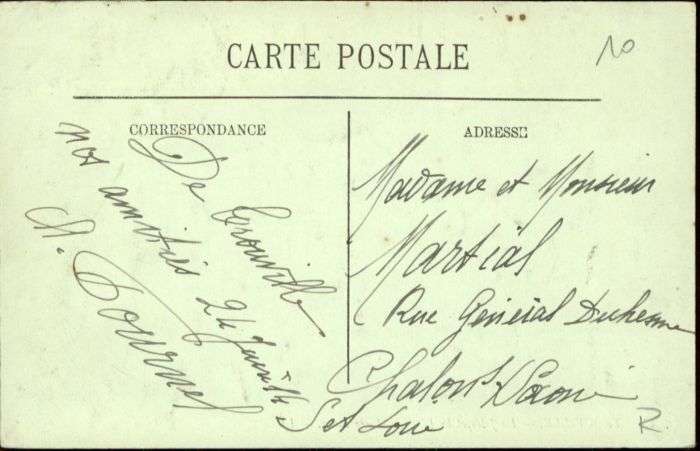 CARTE POSTALE
CORRESPONDANCE
De Trouville
nos amitiés 24
M. Tournel
ADRESSE
Madame et Monsieur
Martial
Rue Général Duhesme
Chalon s/ Saône
S et Loire
10
R.